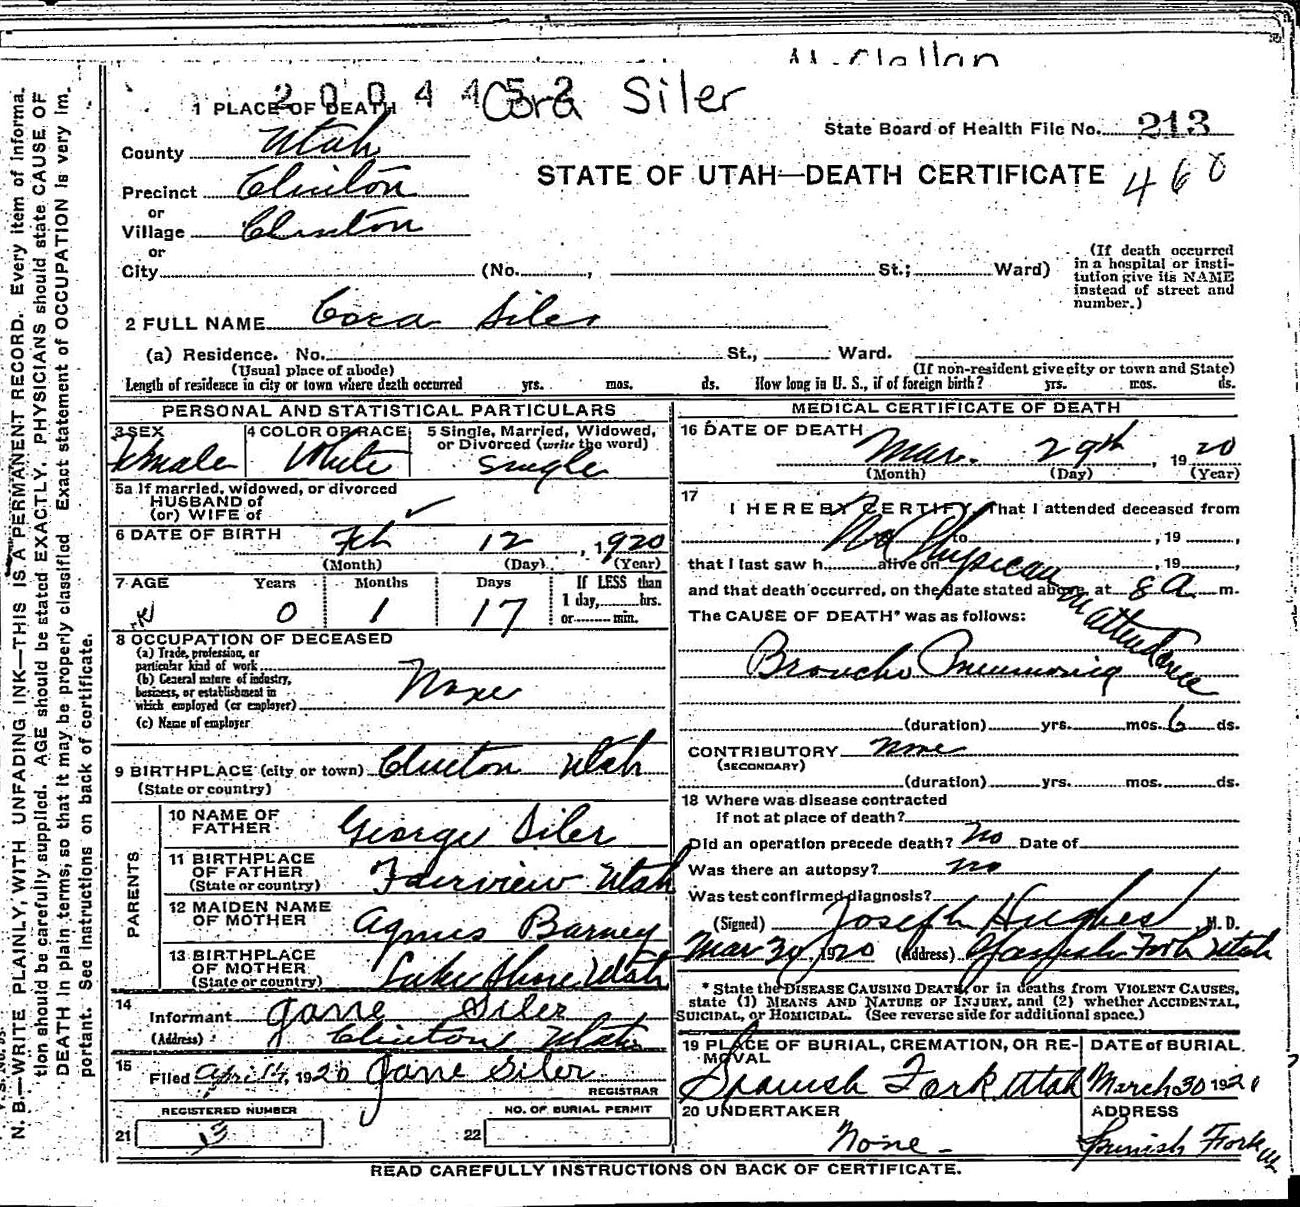 2004452 Cora Siler
1 PLACE OF DEATH
State Board of Health File No. 213
County Utah
STATE OF UTAH—DEATH CERTIFICATE 460
Precinct Clinton
or
Village Clinton
or
City (No. , St.; Ward)
(If death occurred
in a hospital or insti-
tution give its NAME
instead of street and
number.)
2 FULL NAME Cora Siler
(a) Residence. No. St., Ward.
(Usual place of abode) (If non-resident give city or town and State)
Length of residence in city or town where death occurred yrs. mos. ds. How long in U. S., if of foreign birth? yrs. mos. ds.
PERSONAL AND STATISTICAL PARTICULARS
3 SEX
Female
4 COLOR OR RACE
White
5 Single, Married, Widowed,
or Divorced (write the word)
Single
5a If married, widowed, or divorced
HUSBAND of
(or) WIFE of
6 DATE OF BIRTH Feb 12, 1920
(Month) (Day) (Year)
7 AGE Years Months Days If LESS than
1 day, hrs.
or min.
0 1 17
8 OCCUPATION OF DECEASED
(a) Trade, profession, or
particular kind of work
(b) General nature of industry,
business, or establishment in
which employed (or employer)
None
(c) Name of employer
9 BIRTHPLACE (city or town) Clinton Utah
(State or country)
PARENTS
10 NAME OF
FATHER George Siler
11 BIRTHPLACE
OF FATHER Fairview Utah
(State or country)
12 MAIDEN NAME
OF MOTHER Agnus Barney
13 BIRTHPLACE
OF MOTHER Lake Shore Utah
(State or country)
14
Informant Jane Siler
(Address) Clinton Utah
15
Filed April 14, 1920 Jane Siler
REGISTRAR
REGISTERED NUMBER
21 13
NO. OF BURIAL PERMIT
22
MEDICAL CERTIFICATE OF DEATH
16 DATE OF DEATH
Mar. 29th, 1920
(Month) (Day) (Year)
17
I HEREBY CERTIFY, That I attended deceased from
to , 19 ,
that I last saw h alive on , 19 ,
No Physician in attendance
and that death occurred, on the date stated above, at 8 a m.
The CAUSE OF DEATH* was as follows:
Broncho Pneumonia
(duration) yrs. mos. 6 ds.
CONTRIBUTORY None
(SECONDARY)
(duration) yrs. mos. ds.
18 Where was disease contracted
If not at place of death?
Did an operation precede death? No Date of
Was there an autopsy? no
Was test confirmed diagnosis?
(Signed) Joseph Hughes M. D.
Mar 30, 1920 (Address) Spanish Fork Utah
* State the DISEASE CAUSING DEATH, or in deaths from VIOLENT CAUSES,
state (1) MEANS AND NATURE OF INJURY, and (2) whether ACCIDENTAL,
SUICIDAL, or HOMICIDAL. (See reverse side for additional space.)
19 PLACE OF BURIAL, CREMATION, OR RE-
MOVAL
Spanish Fork Utah
DATE of BURIAL
March 30 192
20 UNDERTAKER
None
ADDRESS
Spanish Fork
READ CAREFULLY INSTRUCTIONS ON BACK OF CERTIFICATE.
N. B.—WRITE PLAINLY, WITH UNFADING INK—THIS IS A PERMANENT RECORD. Every item of informa-
tion should be carefully supplied. AGE should be stated EXACTLY. PHYSICIANS should state CAUSE OF
DEATH in plain terms, so that it may be properly classified. Exact statement of OCCUPATION is very im-
portant. See instructions on back of certificate.